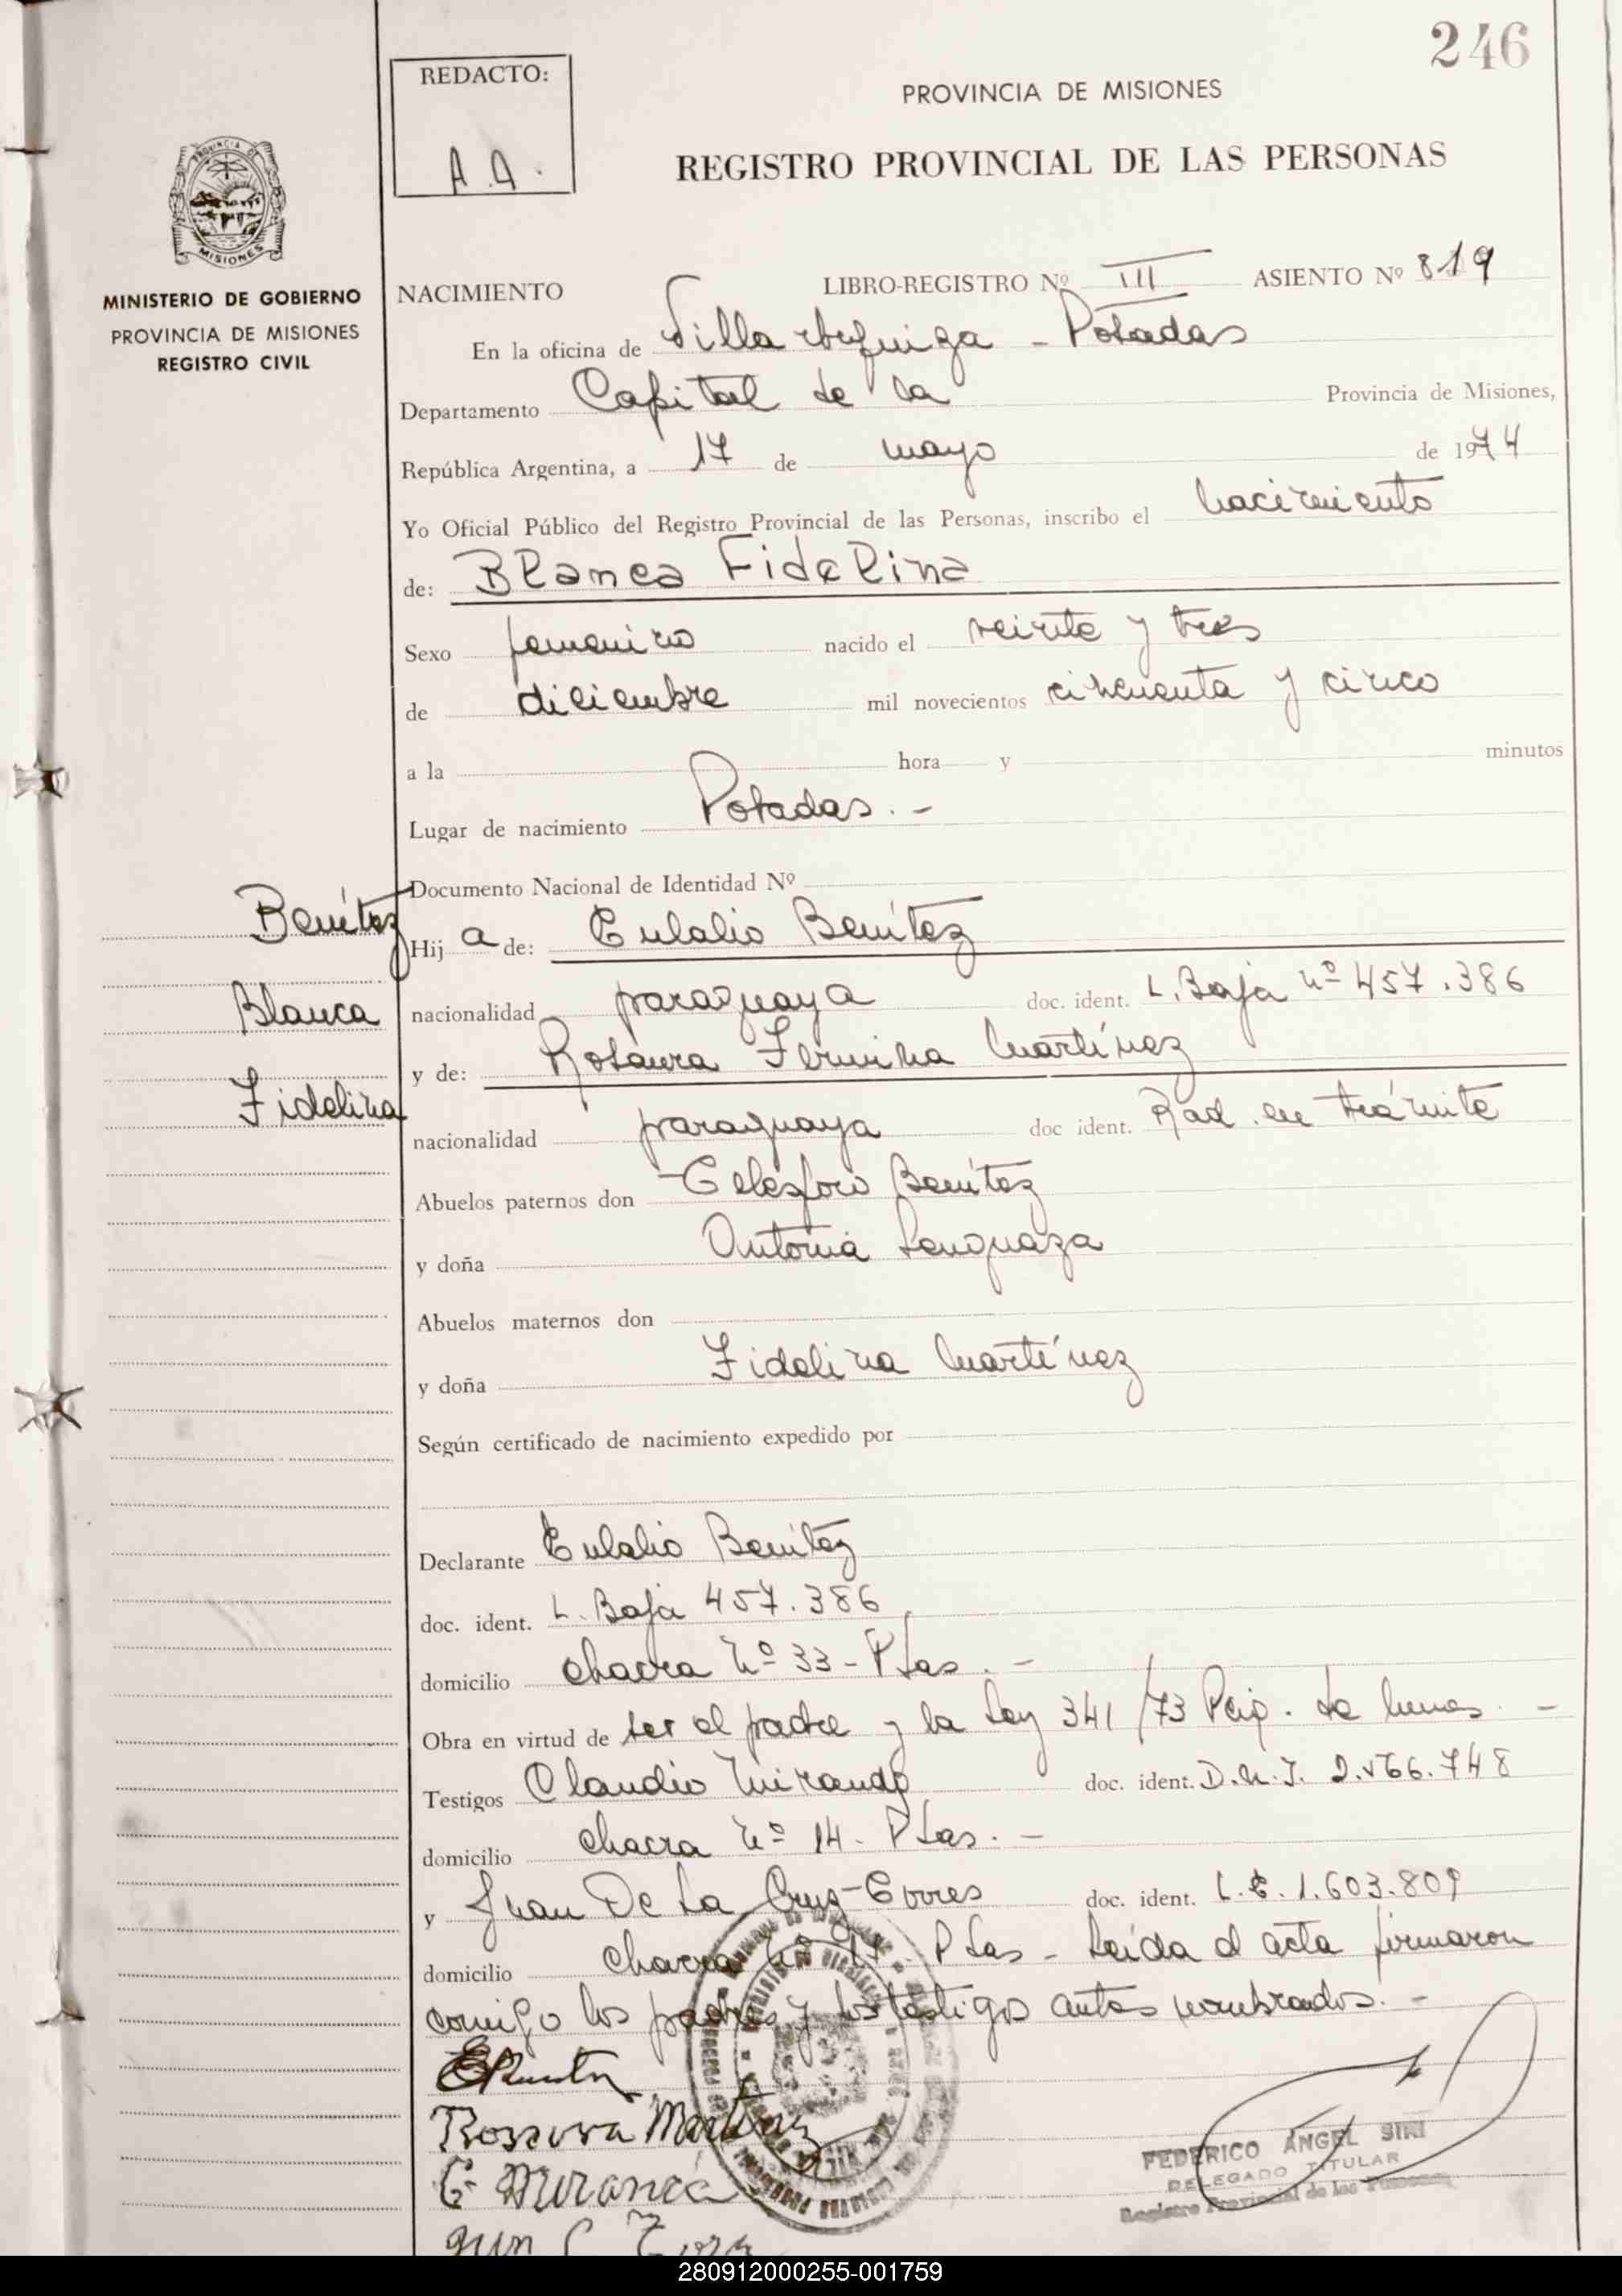 246
REDACTO:
A.A.
PROVINCIA DE MISIONES
REGISTRO PROVINCIAL DE LAS PERSONAS
PROVINCIA DE
MISIONES
MINISTERIO DE GOBIERNO
PROVINCIA DE MISIONES
REGISTRO CIVIL
NACIMIENTO LIBRO-REGISTRO Nº III ASIENTO Nº 819
En la oficina de Villa Urquiza - Posadas
Departamento Capital de la Provincia de Misiones,
República Argentina, a 17 de mayo de 1974
Yo Oficial Público del Registro Provincial de las Personas, inscribo el nacimiento
de: Blanca Fidelina
Sexo femenino nacido el veinte y tres
de diciembre mil novecientos cincuenta y cinco
a la hora y minutos
Lugar de nacimiento Posadas. -
Documento Nacional de Identidad Nº
Benítez
Hij a de: Eulalio Benítez
Blanca
nacionalidad paraguaya doc. ident. L. Baja nº 457.386
y de: Rosaura Fermina Martínez
Fidelina
nacionalidad paraguaya doc ident. Rad. en trámite
Abuelos paternos don Telésforo Benítez
y doña Antonia
Abuelos maternos don
y doña Fidelina Martínez
Según certificado de nacimiento expedido por
Declarante Eulalio Benítez
doc. ident. L. Baja 457.386
domicilio chacra nº 33 - Pdas. -
Obra en virtud de ser el padre y la Ley 341/73 -
Testigos Claudio Miranda doc. ident. D.N.I.
domicilio chacra nº 14 - Pdas. -
y Juan De La Cruz doc. ident. L.E. 1.603.809
domicilio chacra nº Pdas - Leída el acta firmaron
comigo los padres y los testigos antes nombrados. -
Martinez
C. Miranda
FEDERICO ANGEL SIRI
DELEGADO TITULAR
Registro Provincial de las Personas
280912000255-001759